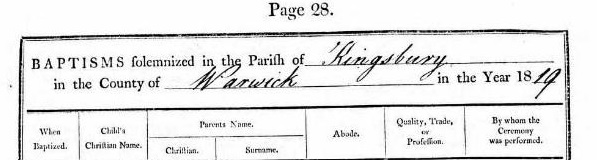 Page 28.
BAPTISMS solemnized in the Parish of Kingsbury
in the County of Warwick in the Year 1819
When Baptized.
Child's Christian Name.
Parents Name.
Christian.
Surname.
Abode.
Quality, Trade, or Profession.
By whom the Ceremony was performed.